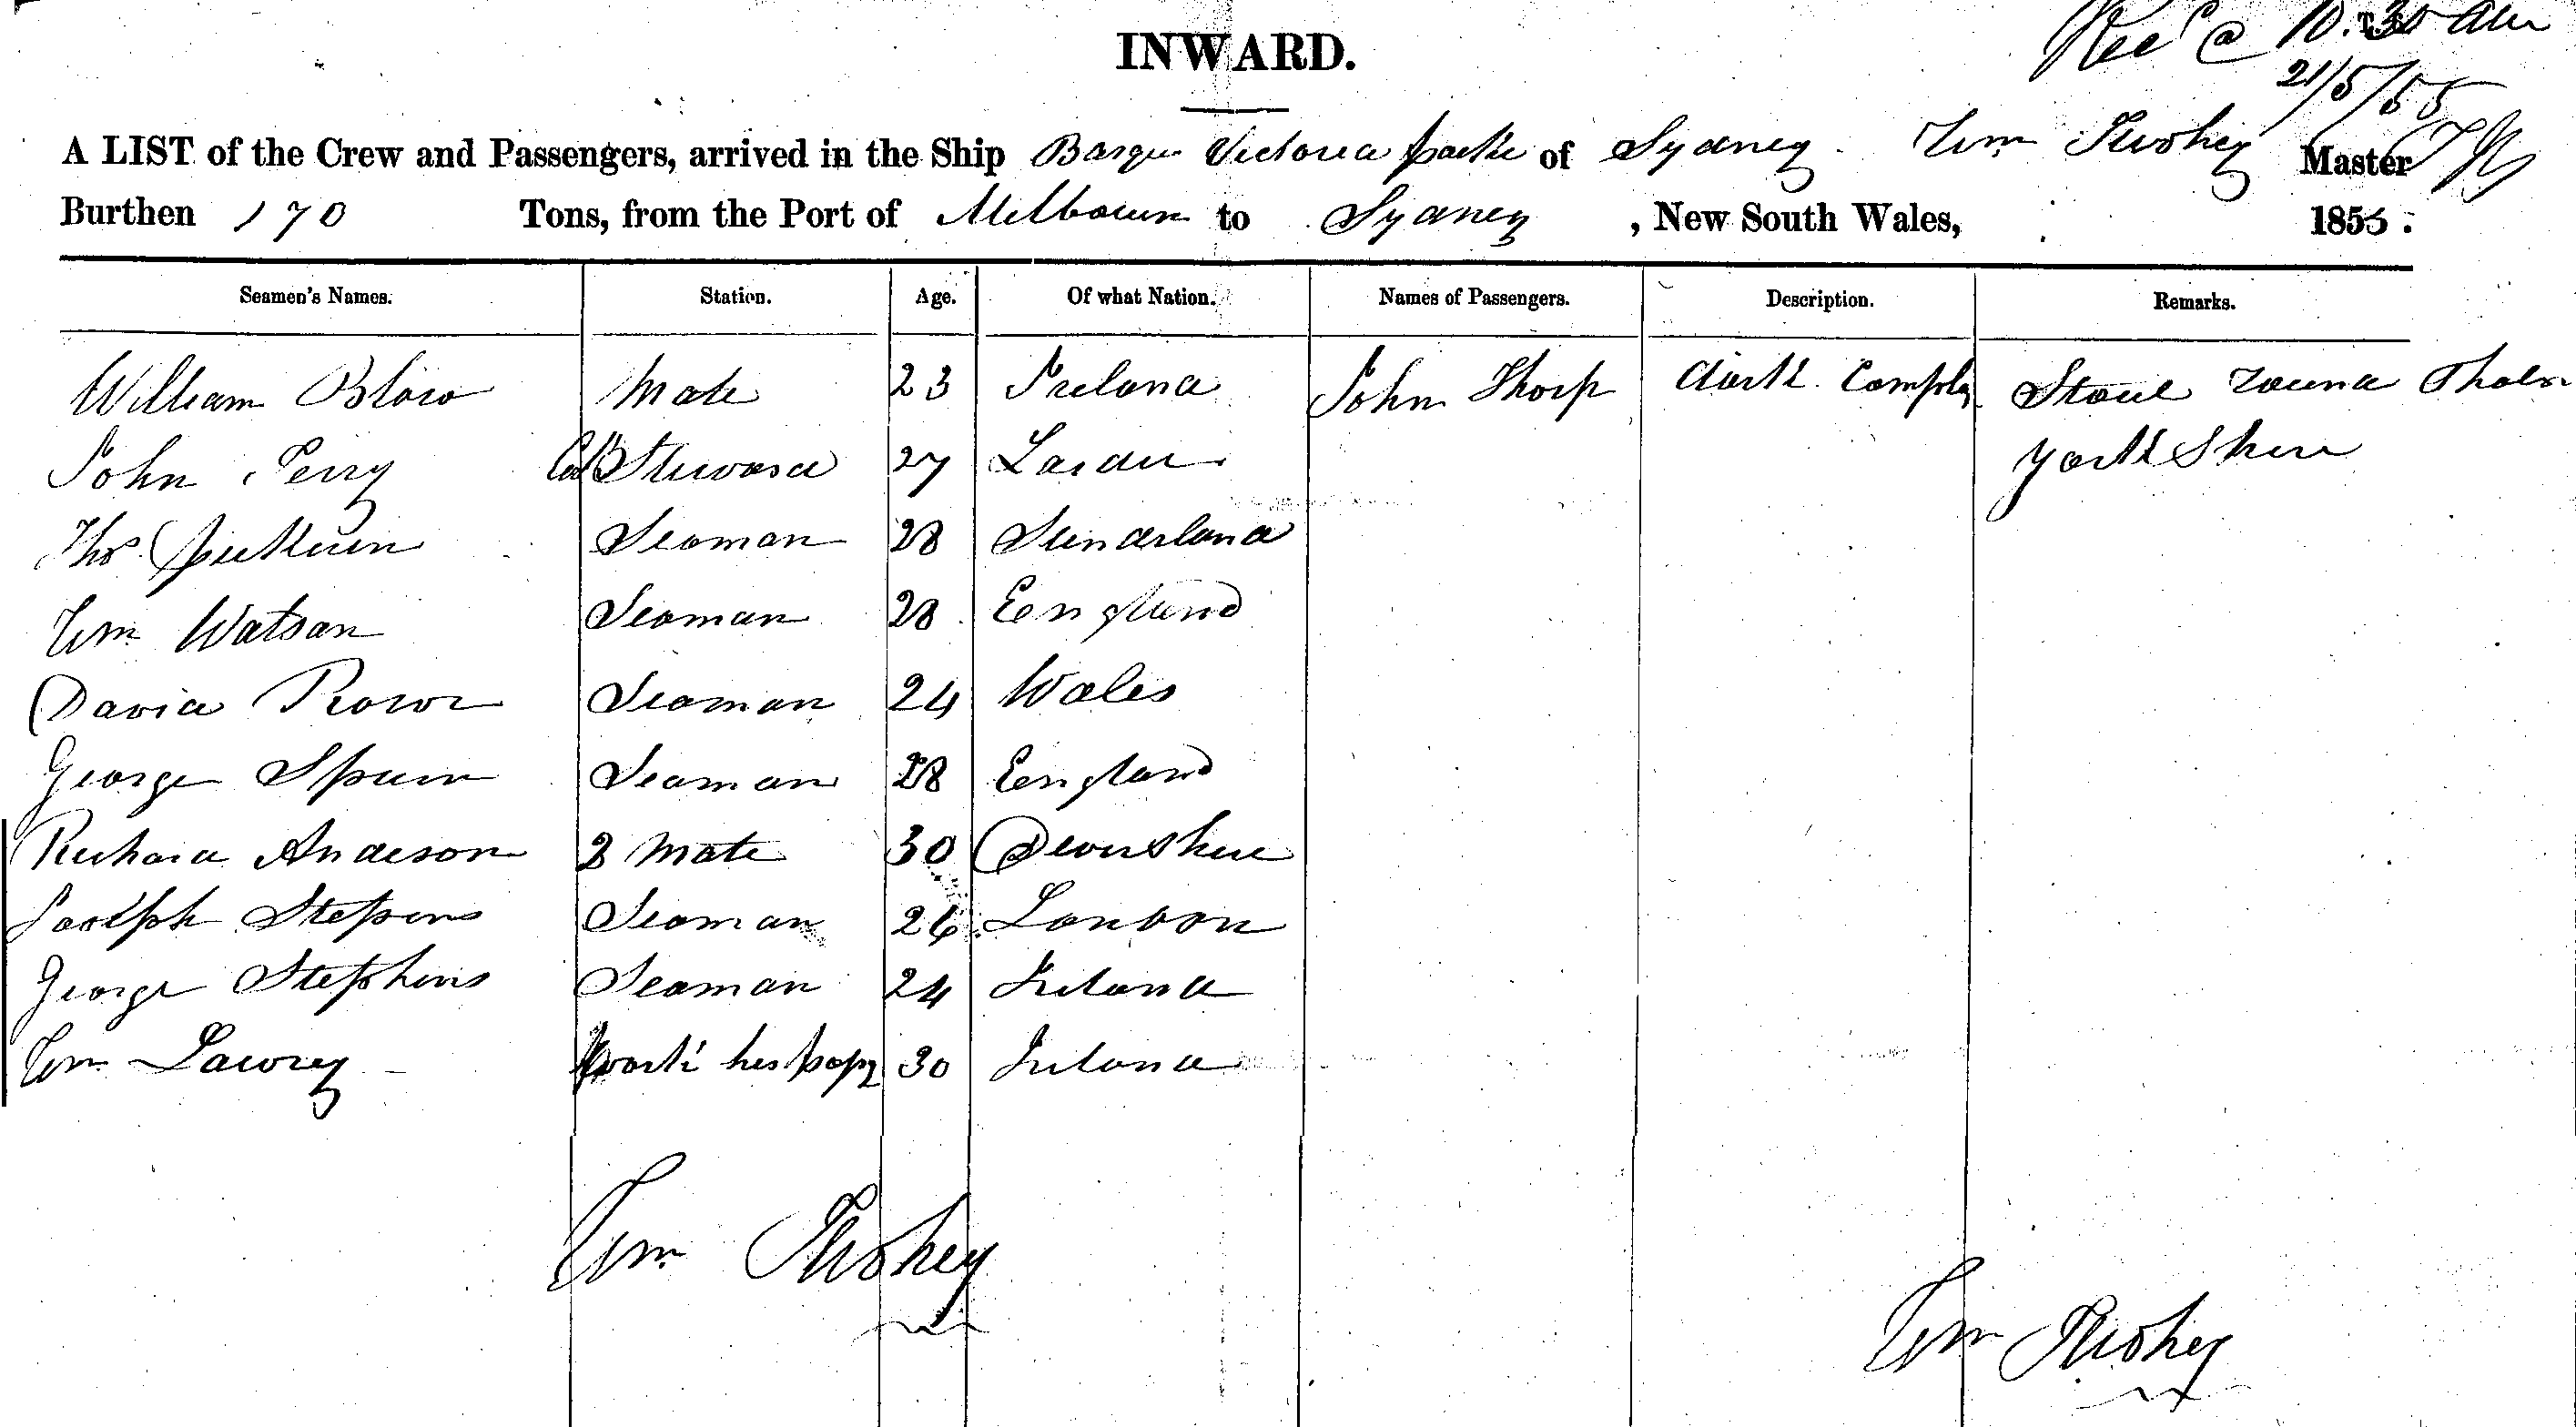 Rec'd @ 10.30 am
INWARD.
21/5/55
A LIST of the Crew and Passengers, arrived in the Ship Barque Victoria packe of Sydney. Wm Twohey Master
Burthen 170 Tons, from the Port of Melbourn to Sydney, New South Wales, 1855.
Seamen's Names. Station. Age. Of what Nation. Names of Passengers. Description. Remarks.
William Blow Mate 23 Ireland John Thorp dark Stout
John Perry Stuward 27 York Shire
Thos Seaman 28 Sunderland
Wm Watson Seaman 28 England
David Rowe Seaman 24 Wales
George Seaman 28 England
Richard Anderson 2 Mate 30 Devonshire
Joseph Stepens Seaman 26 London
George Stephens Seaman 24 Ireland
Wm Lawrey work his 30 Ireland
Wm Twohey
Wm Twohey